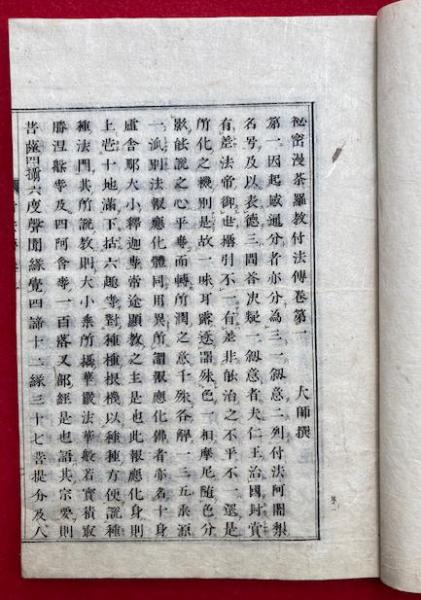 祕密漫荼羅教付法傳卷第一　大師撰
第一因起感通分者亦分為三一敘意二列付法阿闍梨
名号及以表德三問荅決疑一敘意者夫仁王治國封賞
有差法帝御世攝引不二有差非能治之不平不一還是
所化之機則是故一味耳露逐器殊色一相摩尼随色分
影能說之心平等而轉所潤之意千殊各解一三五乘源
一派別法報應化體同用異所謂報應化佛者亦名十身
盧舍那大小釋迦等常途顯教之主是也此報應化身則
上莅十地滿下括六趣等對種種根機以種種方便說種
種法門其所說教則大小乘所攝華嚴法華般若寶積取
勝涅槃等及四阿含等一百落叉部經是也語其宗要則
菩薩四攝六度聲聞緣覺四諦十二緣三十七菩提分及八